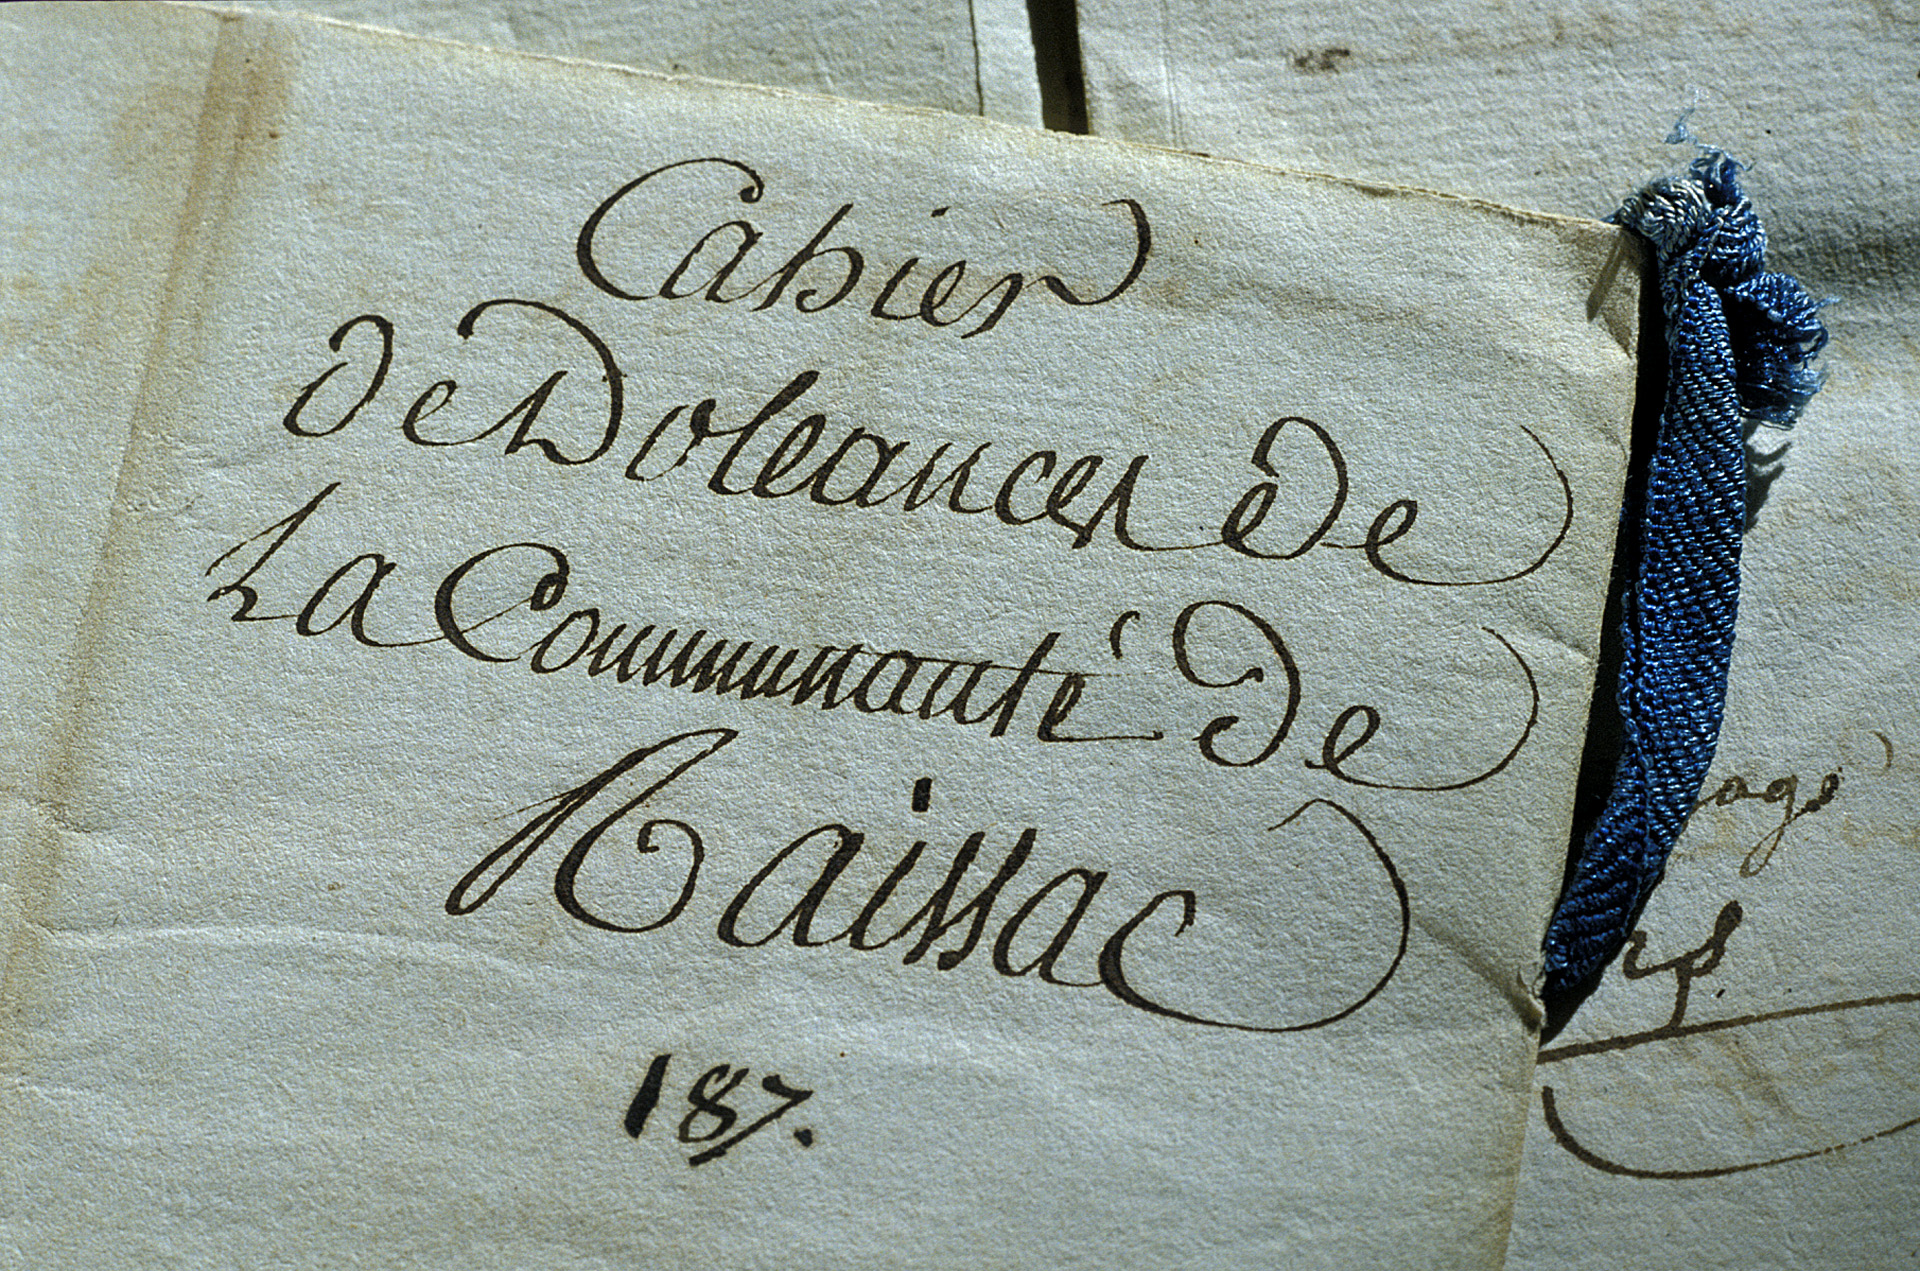 Cahier
de Doleances de
La Communauté de
Raissac
187.